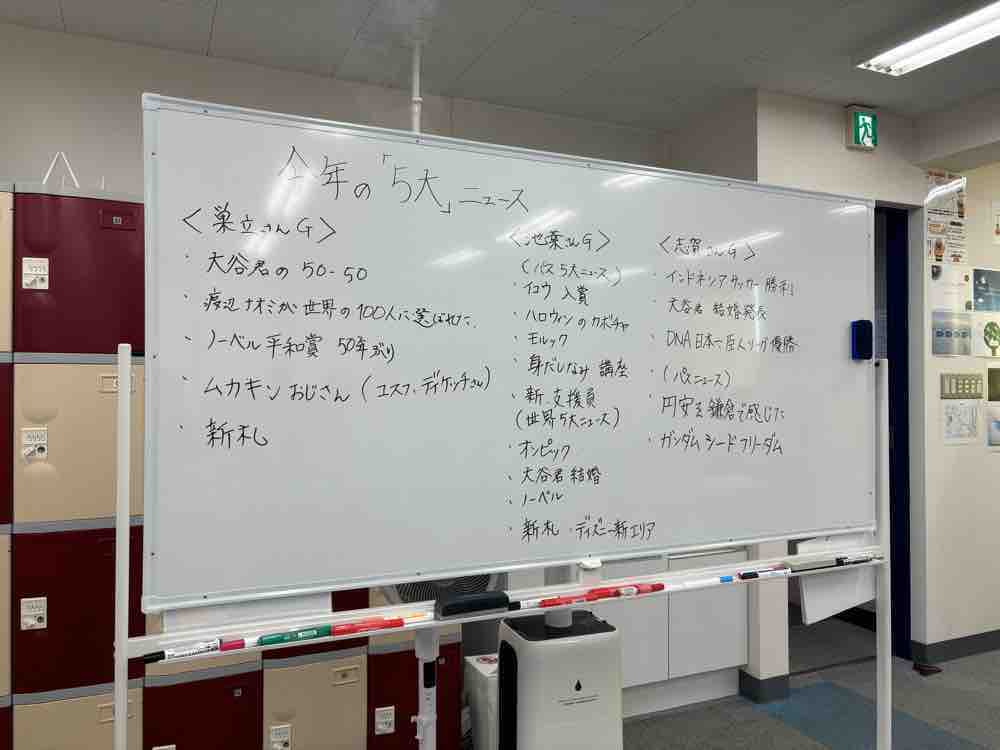 今年の「5大」ニュース
<巣立さんG>
・大谷君の 50-50
・渡辺ナオミが世界の100人に選ばれた.
・ノーベル平和賞 50年ぶり
・ムカキン おじさん (ユスフ.ディケッチさん)
・新札
<池葉さんG>
(パス5大ニュース)
・イコウ 入賞
・ハロウィンのカボチャ
・モルック
・身だしなみ 講座
・新.支援員
(世界5大ニュース)
・オンピック
・大谷君 結婚
・ノーベル
・新札 ・ディズニー新エリア
<志賀さんG>
・インドネシアサッカー 勝利
・大谷君 結婚発表
・DNA日本一 巨人リーグ優勝
・(パスニュース)
・円安を鎌倉で感じた
・ガンダムシードフリーダム